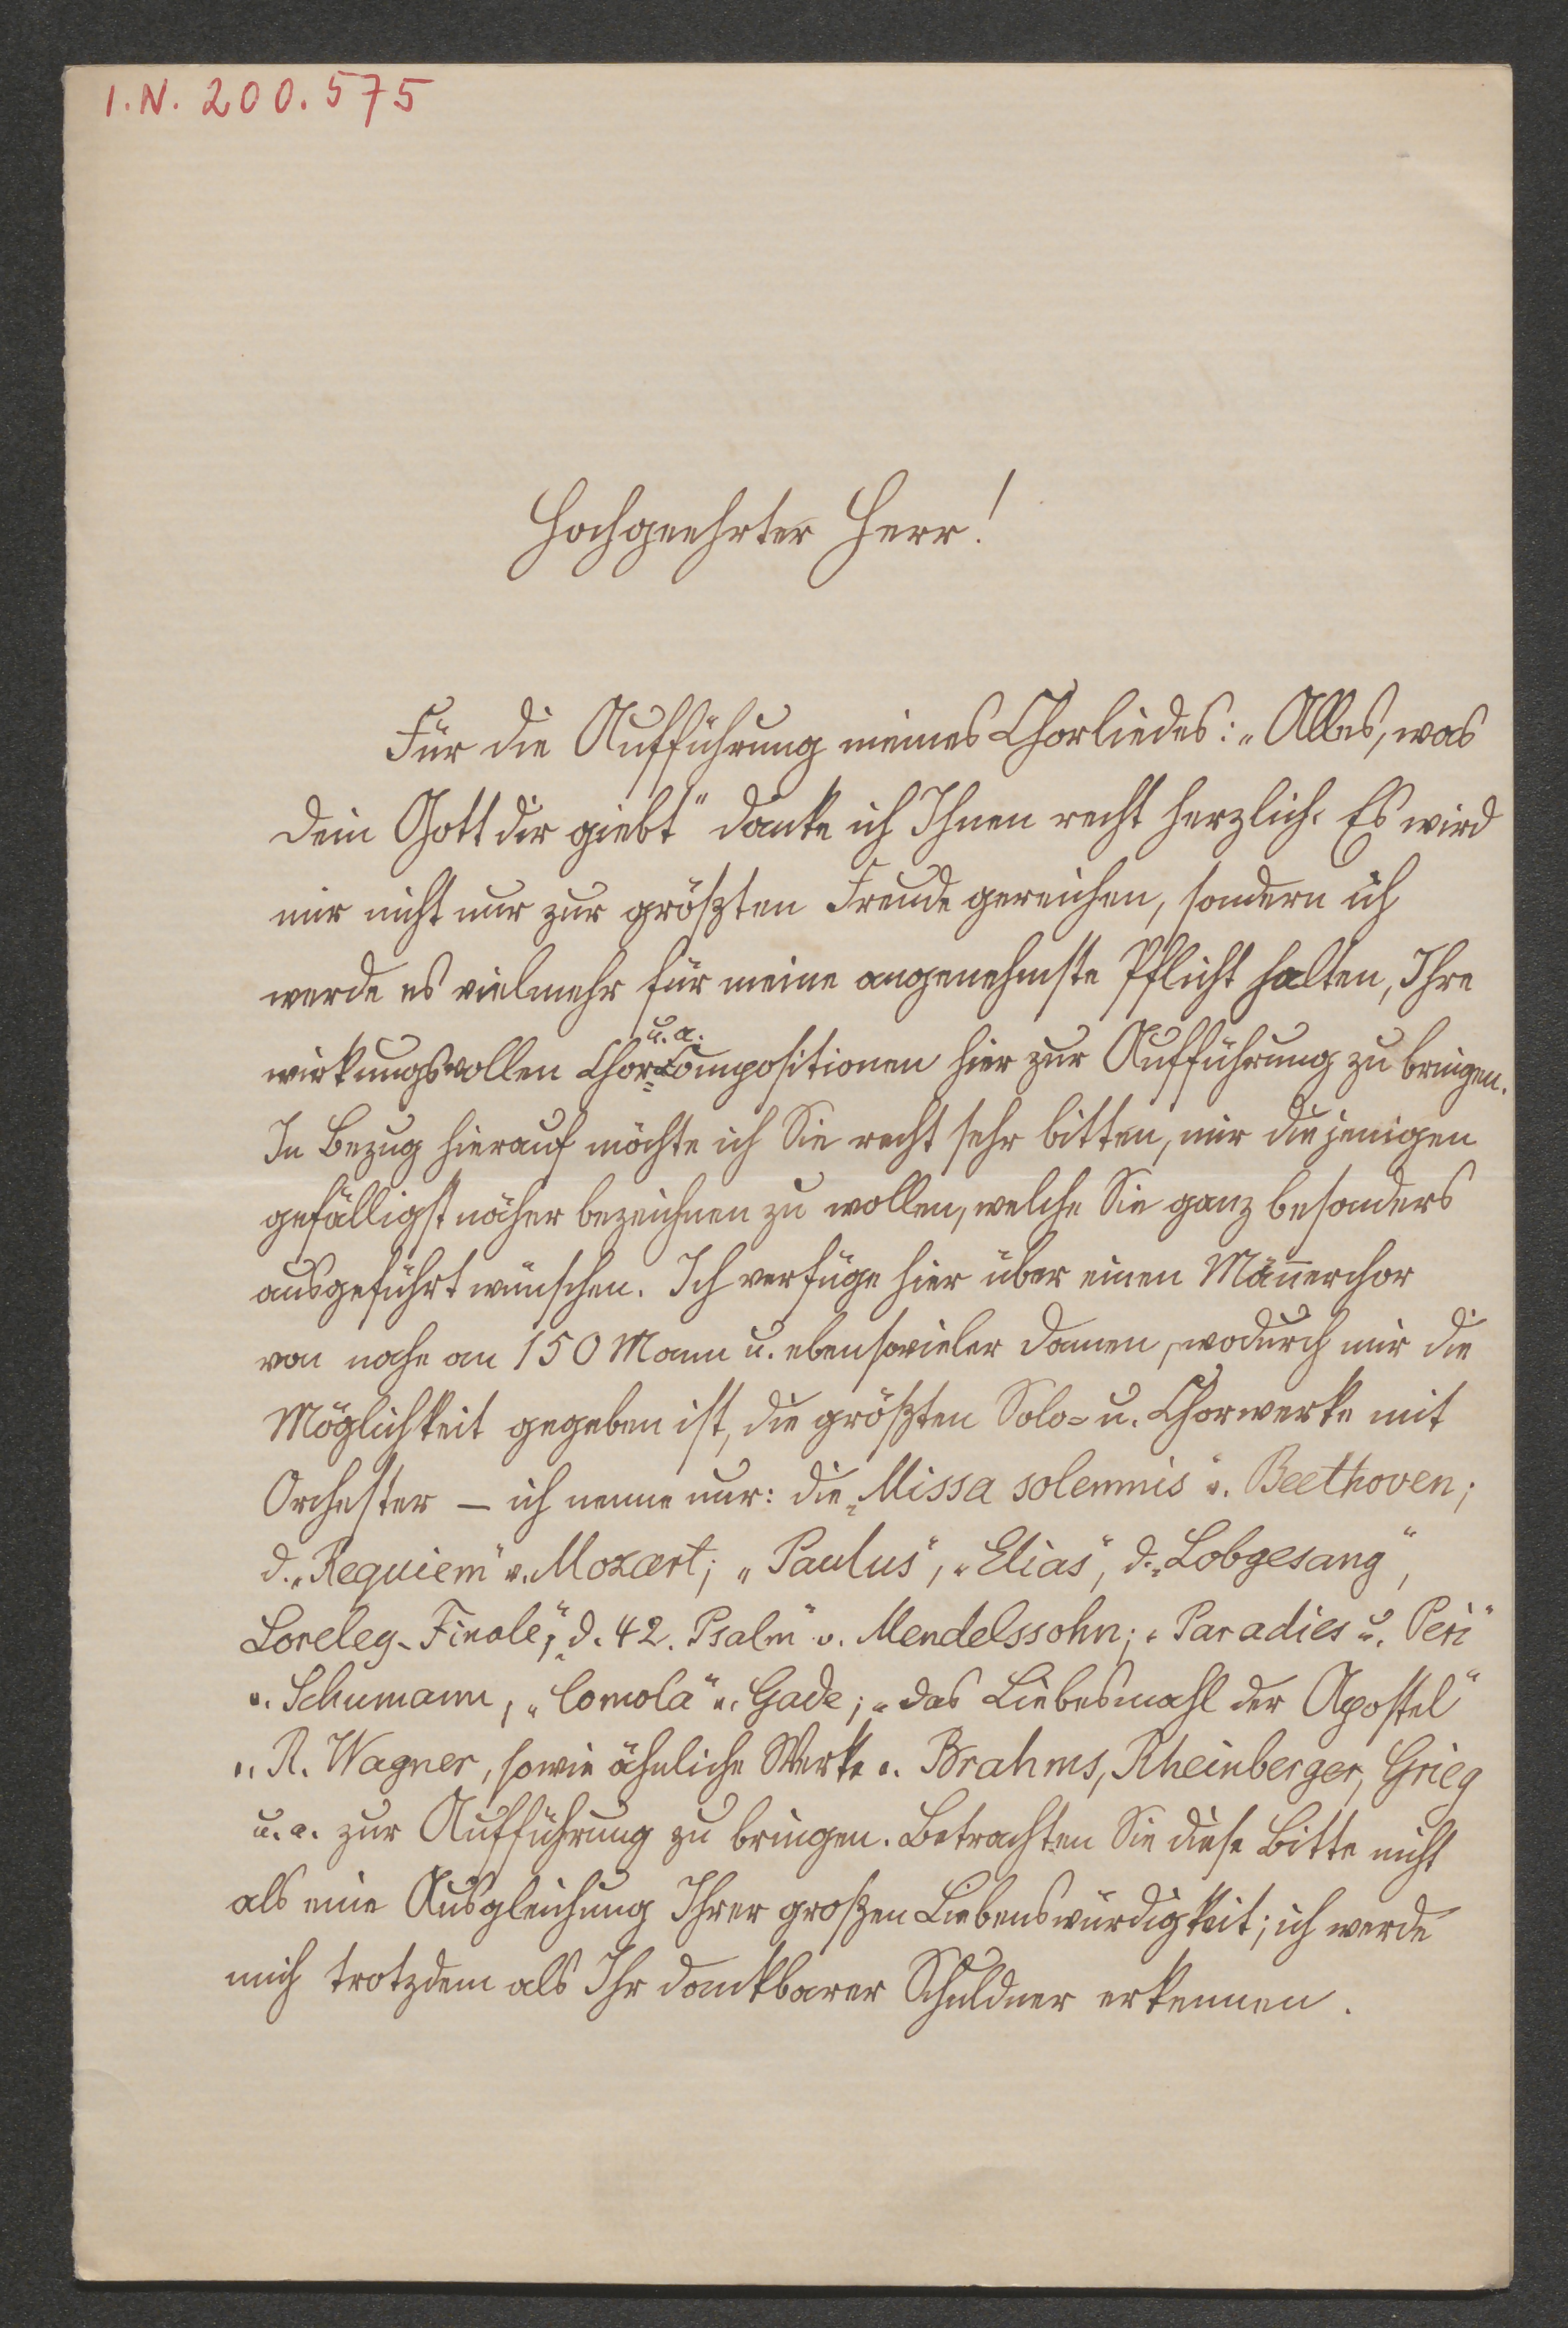 I.N. 200.575
Hochgeehrter Herr!
Für die Aufführung meines Chorliedes: „Alles, was
dein Gott dir giebt" danke ich Ihnen recht herzlich. Es wird
mir nicht nur zur größten Freude gereichen, sondern ich
werde es vielmehr für meine angenehmste Pflicht halten, Ihre
u. a.
wirkungsvollen Chor-Compositionen hier zur Aufführung zu bringen.
In Bezug hierauf möchte ich Sie recht sehr bitten, mir diejenigen
gefälligst näher bezeichnen zu wollen, welche Sie ganz besonders
ausgeführt wünschen. Ich verfüge hier über einen Män̅erchor
von nahe an 150 Mann u. ebensovieler Damen, wodurch mir die
Möglichkeit gegeben ist, die größten Solo- u. Chorwerke mit
Orchester – ich nenne nur: die „Missa solemnis" v. Beethoven;
d. „Requiem" v. Mozart; „Paulus", „Elias", d. „Lobgesang",
Loreley-Finale", „d. 42. Psalm" v. Mendelssohn; „Paradies u. Peri"
v. Schumann, „Comola" v. Gade; „das Liebesmahl der Apostel"
v. R. Wagner, sowie ähnliche Werke v. Brahms, Rheinberger, Grieg
u. a. zur Aufführung zu bringen. Betrachten Sie diese Bitte nicht
als eine Ausgleichung Ihrer großen Liebenswürdigkeit; ich werde
mich trotzdem als Ihr dankbarer Schuldner erkennen.